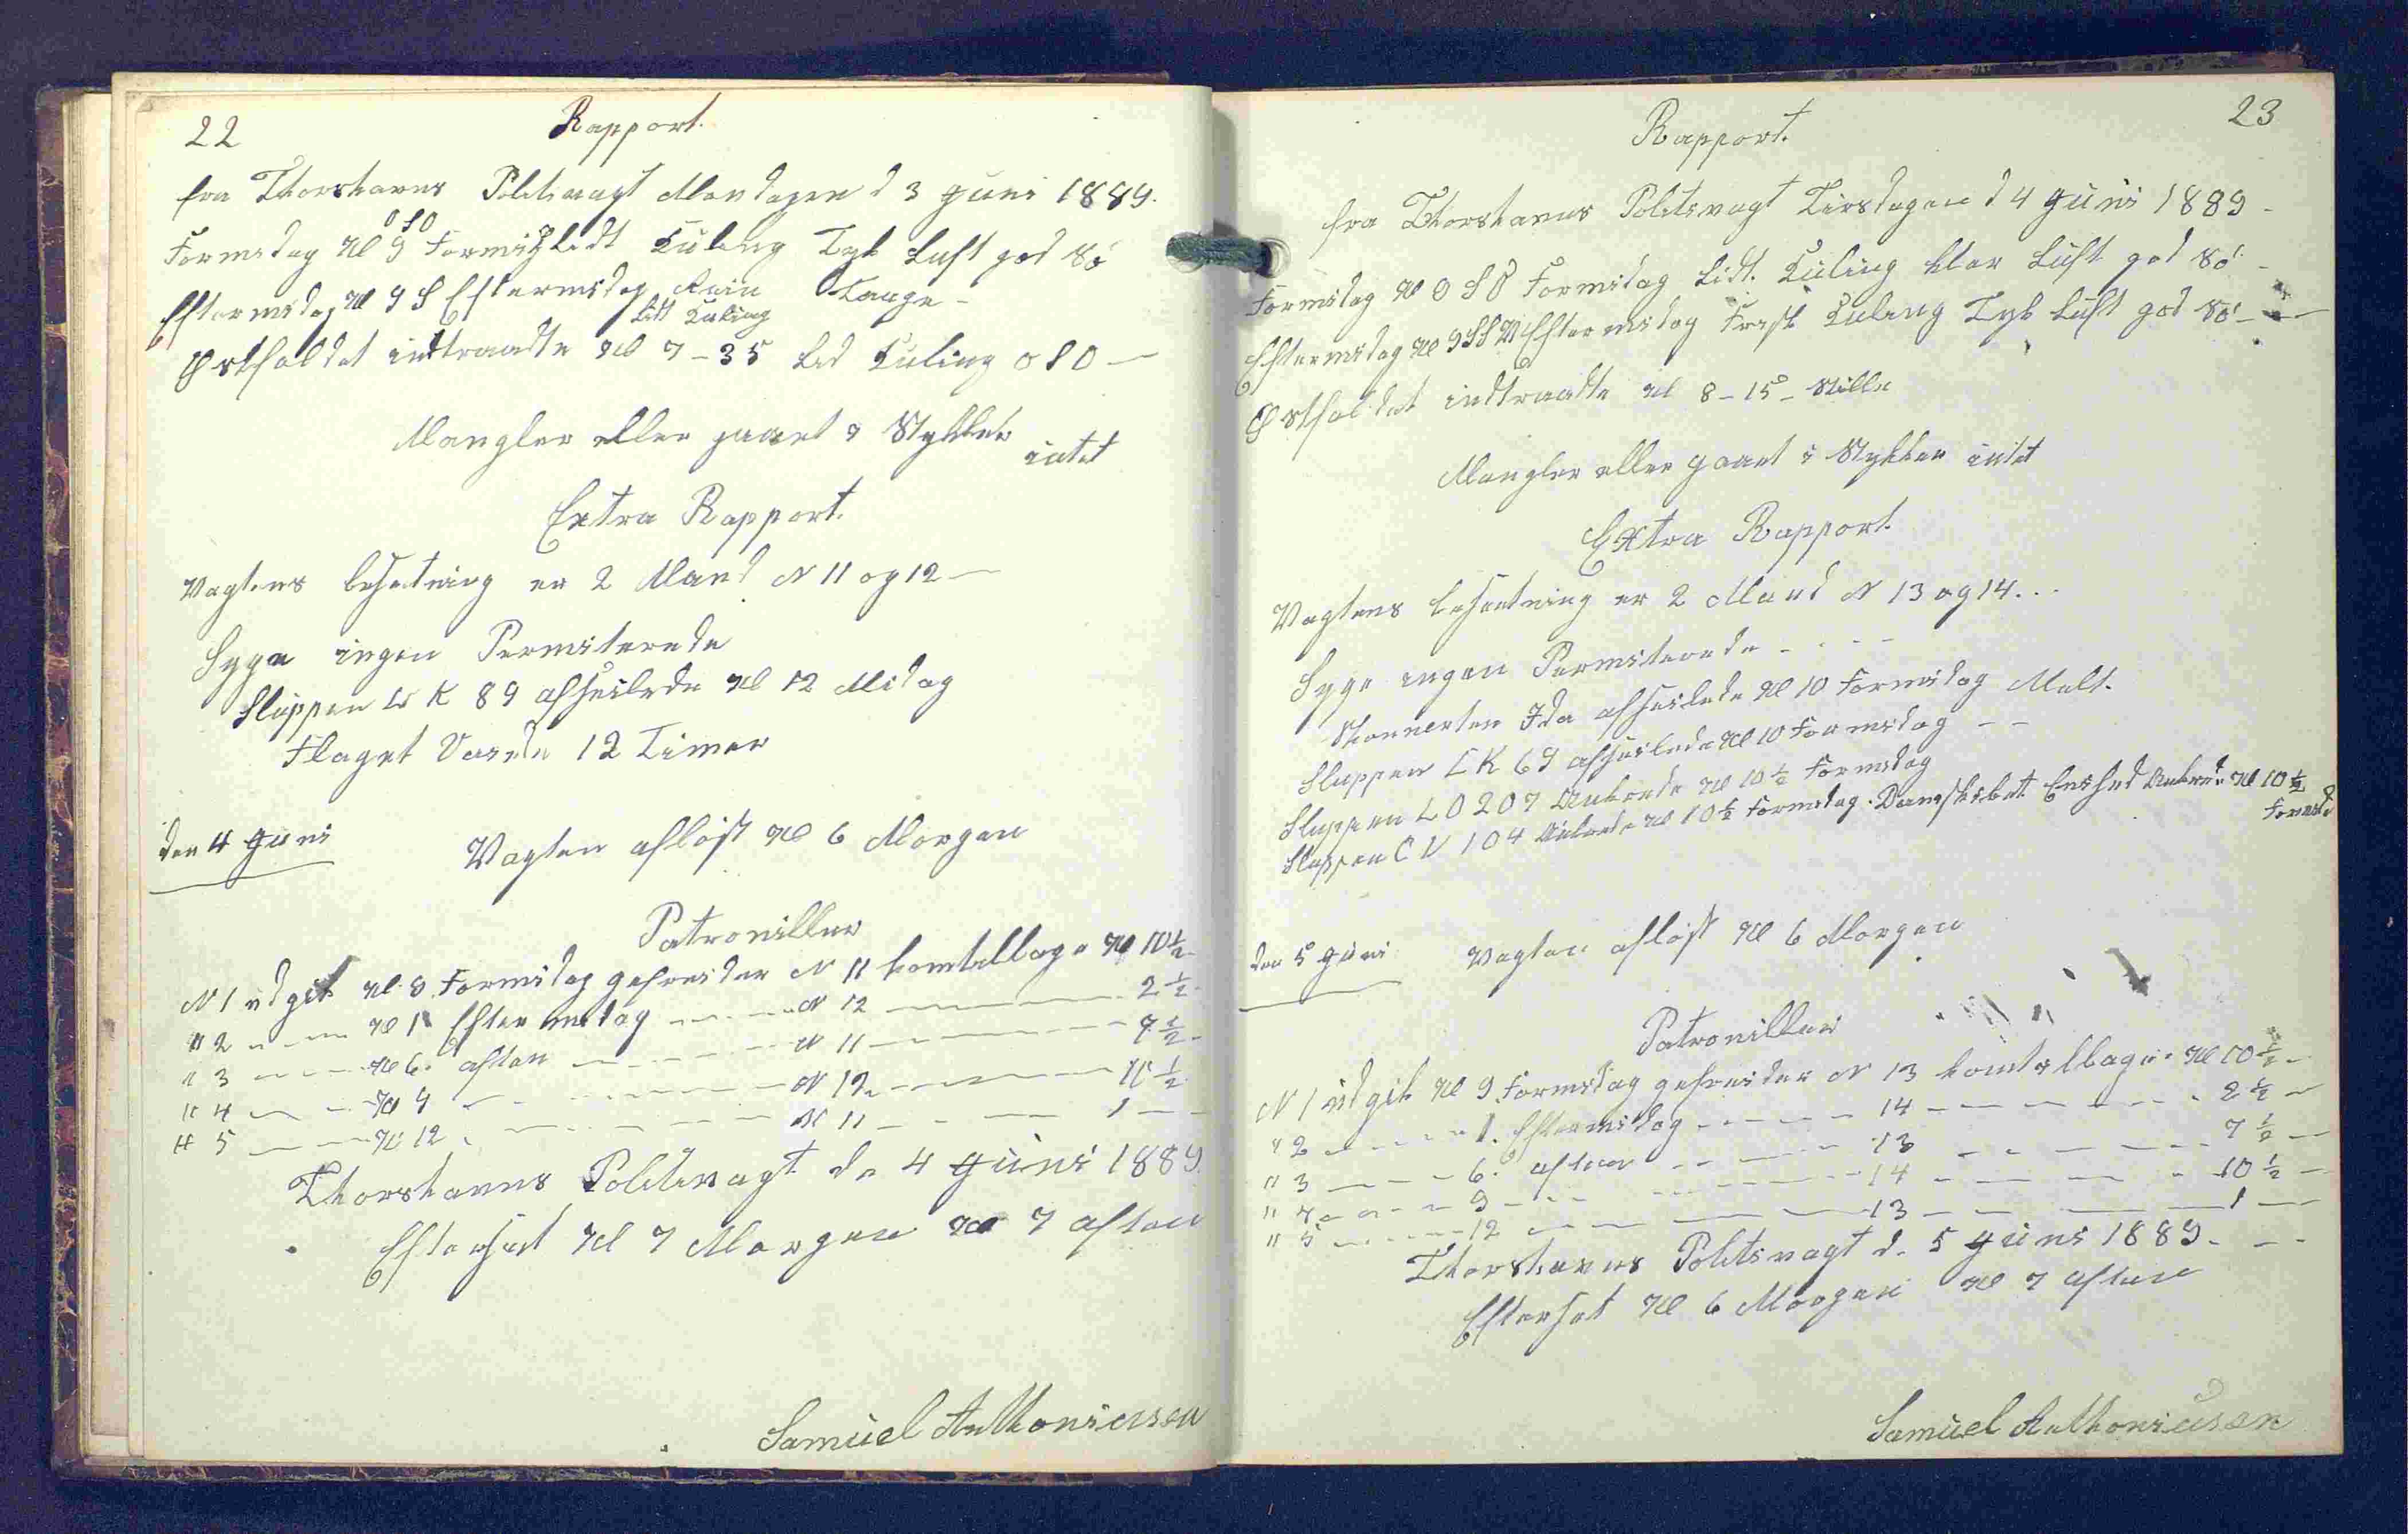 22
Rapport.
fra Thorshavns Politivagt Mandagen d 3 Juni 1889.
OSO
Formidag Kl 9 Formid Lidt Kuling Tyk Luft god Sö
Eftermidag Kl 9 S Eftermidag Rein Taage -
Lidt Kuling
Østfaldet indtraadte Kl 7-35 Lid Kuling OSO -
Mangler eller gaaet i Stykker
intet
Extra Rapport.
Vagtens besetning er 2 Mand N 11 og 12 -
Syge ingen Permiterede
Sluppen LK 89 afseilede Kl 12 Midag
Flaget Vaiede 12 Timer
den 4 Juni
Vagten aflöst Kl 6 Morgen
Patrouiller
N 1 udgik Kl 8 Formidag gefreider N 11 kom tilbage Kl 10½
" 2 - - - Kl 1 Eftermidag - - - N 12 - - - 2½
" 3 - - - Kl 6 aften - - - N 11 - - - 7½
" 4 - - - Kl 9 - - - N 12 - - - 10½
" 5 - - - Kl 12 - - - N 11 - - - 1 - -
Thorshavns Politivagt de 4 Juni 1889.
Efterset Kl 7 Morgen Kl 7 aften
Samuel Anthoniusen
23
Rapport.
fra Thorshavns Politivagt Tirsdagen d 4 Juni 1889 -
Formidag Kl OSO Formidag Lidt. Kuling klar Luft god Sö -
Eftermidag Kl 9 SSW Eftermidag Frisk Kuling Tyk Luft god Sö - -
Østfaldet indtraadte Kl 8-15 - Stille
Mangler eller gaaet i Stykker intet
Extra Rapport
Vagtens besætning er 2 Mand N 13 og 14...
Syge ingen Permiterede - - - -
Skonnerten Ida afseilede Kl 10 Formidag
Sluppen LK 69 afseilede Kl 10 Formidag - -
Sluppen LO 207 Ankrede Kl 10½ Formidag
Sluppen CV 104 Ankrede Kl 10½ Formidag. Dampskibet Ankrede Kl 10½
Formid
den 5 Juni
Vagten aflöst Kl 6 Morgen
Patrouiller
N 1 udgik Kl 9 Formidag gefreider N 13 kom tilbage Kl 10½ -
" 2 - - - 1. Eftermidag - - - 14 - - - 2½ -
" 3 - - - 6. aften - - - 13 - - - 7½ -
" 4 - - - 9 - - - 14 - - - 10½ -
" 5 - - - 12 - - - 13 - - - 1 -
Thorshavns Politivagt d. 5 Juni 1889. - -
Efterset Kl 6 Morgen Kl 7 aften
Samuel Anthoniusen